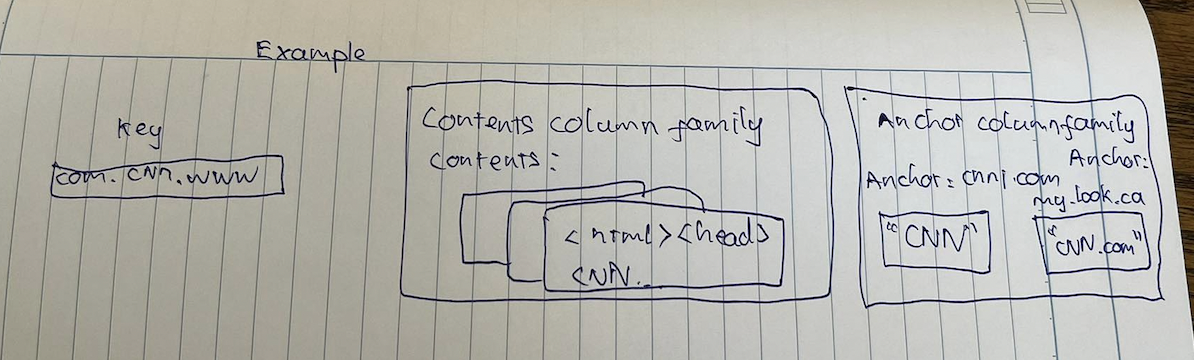 Example
Key
com.cnn.www
Contents column family
contents:
<html><head>
CNN...
Anchor column family
Anchor: cnni.com
"CNN"
Anchor:
my.look.ca
"CNN.com"